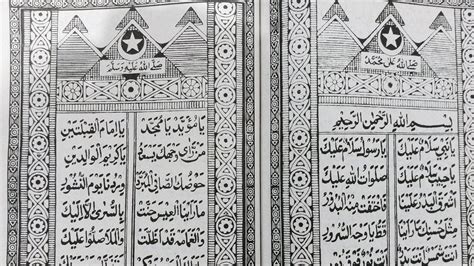 صلى الله على محمد
بسم الله الرحمن الرحيم
يا نبي سلام عليك يا رسول سلام عليك
يا حبيب سلام عليك صلوات الله عليك
اشرق البدر علينا فاختفت منه البدور
مثل حسنك ما رأينا قط يا وجه السرور
انت شمس انت بدر
صلى الله عليه وسلم
يا مؤيد يا ممجد يا امام القبلتين
من رأى وجهك يسعد يا كريم الوالدين
حوضك الصافي المبرد وردنا يوم النشور
ما رأينا العيس حنت بالسرى الا اليك
والغمامة قد اظلت والملا صلوا عليك